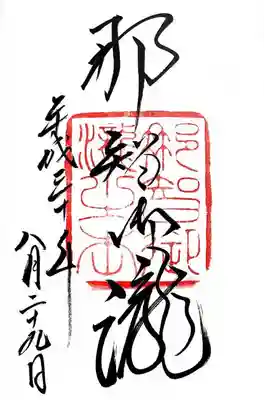 那智御瀧
平成三十年
八月二十九日